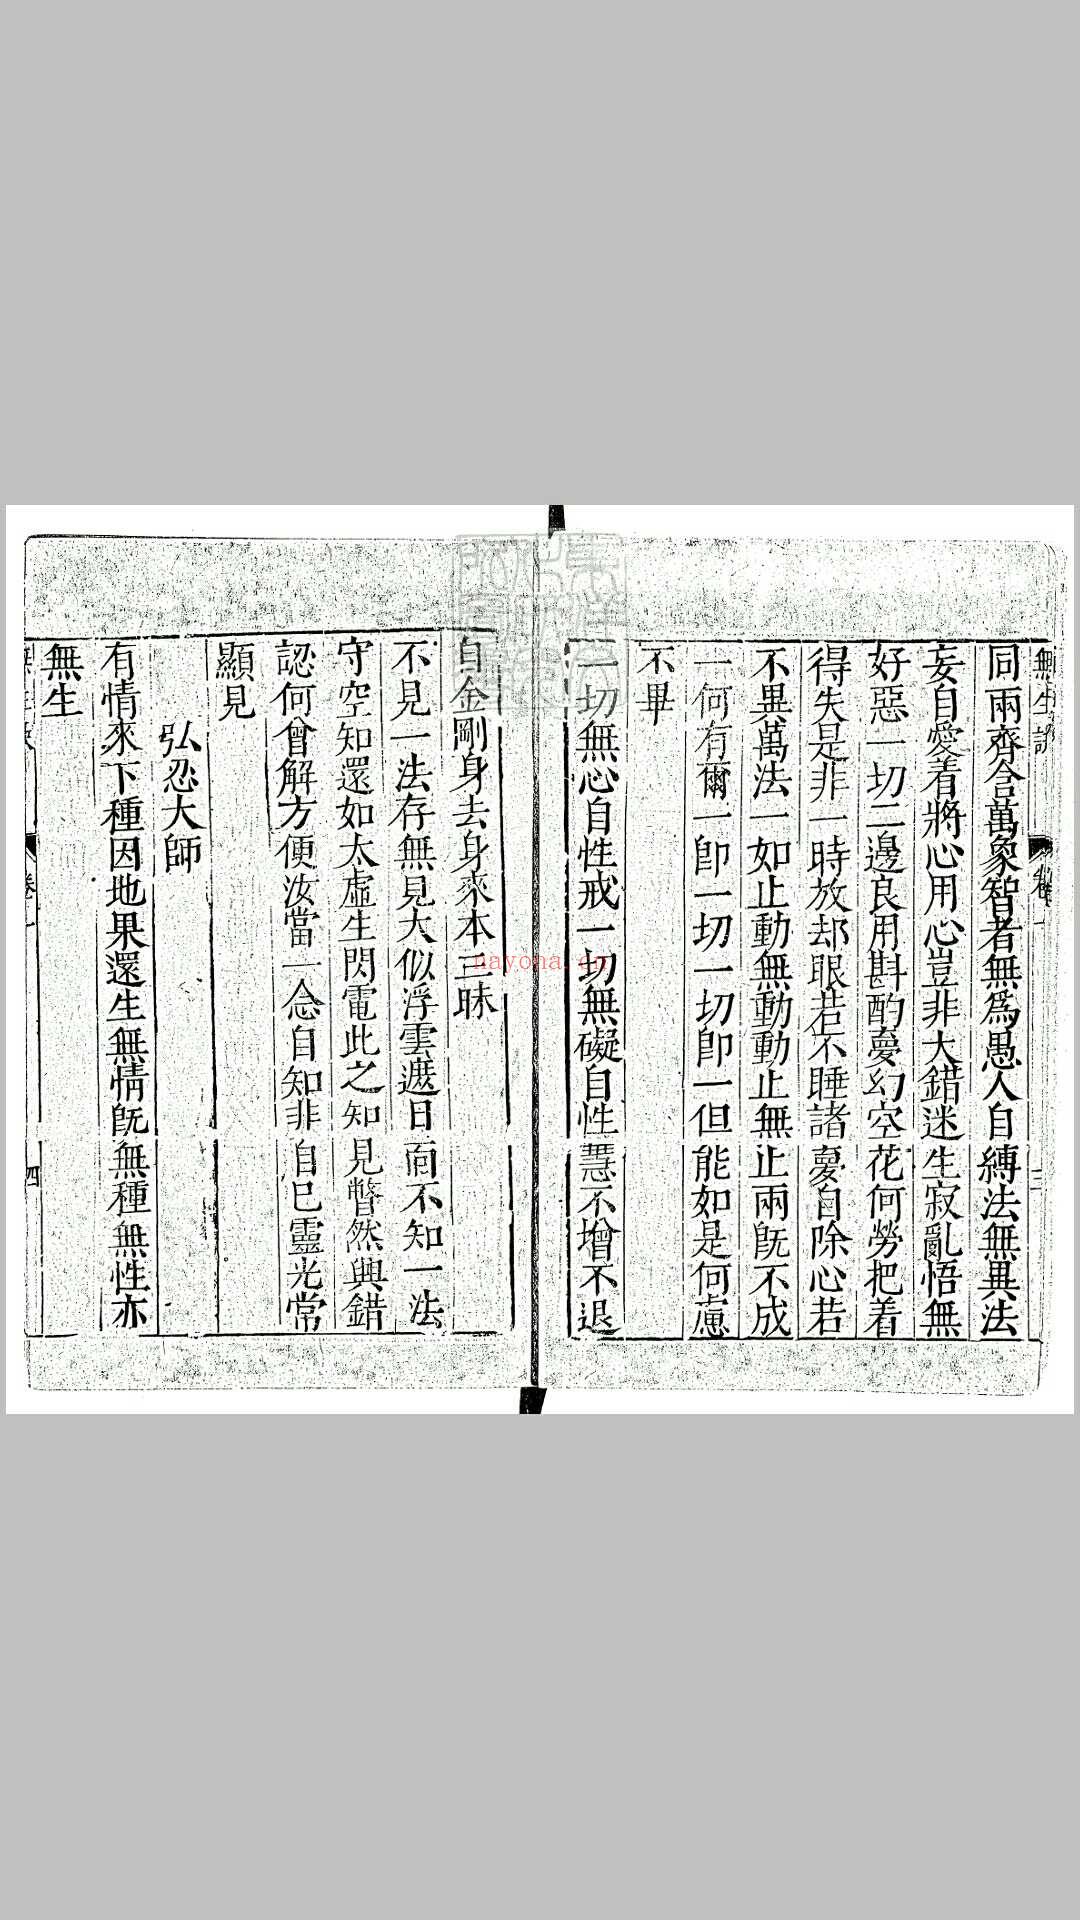 無生訣
卷一
三
同兩齊含萬象智者無爲愚人自縛法無異法
妄自愛着將心用心豈非大錯迷生寂亂悟無
好惡一切二邊良用斟酌夢幻空花何勞把着
得失是非一時放却眼若不睡諸夢自除心若
不異萬法一如止動無動動止無止兩既不成
一何有爾一卽一切一切卽一但能如是何慮
不畢
一切無心自性戒一切無礙自性慧不增不退
自金剛身去身來本三昧
不見一法存無見大似浮雲遮日面不知一法
守空知還如太虛生閃電此之知見瞥然興錯
認何曾解方便汝當一念自知非自己靈光常
顯見
弘忍大師
有情來下種因地果還生無情既無種無性亦
無生
四
nayona.cn